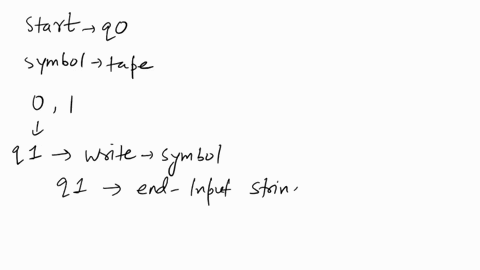 start → q0
symbol → tape
0, 1
↓
q1 → write → symbol
q1 → end-Input strin